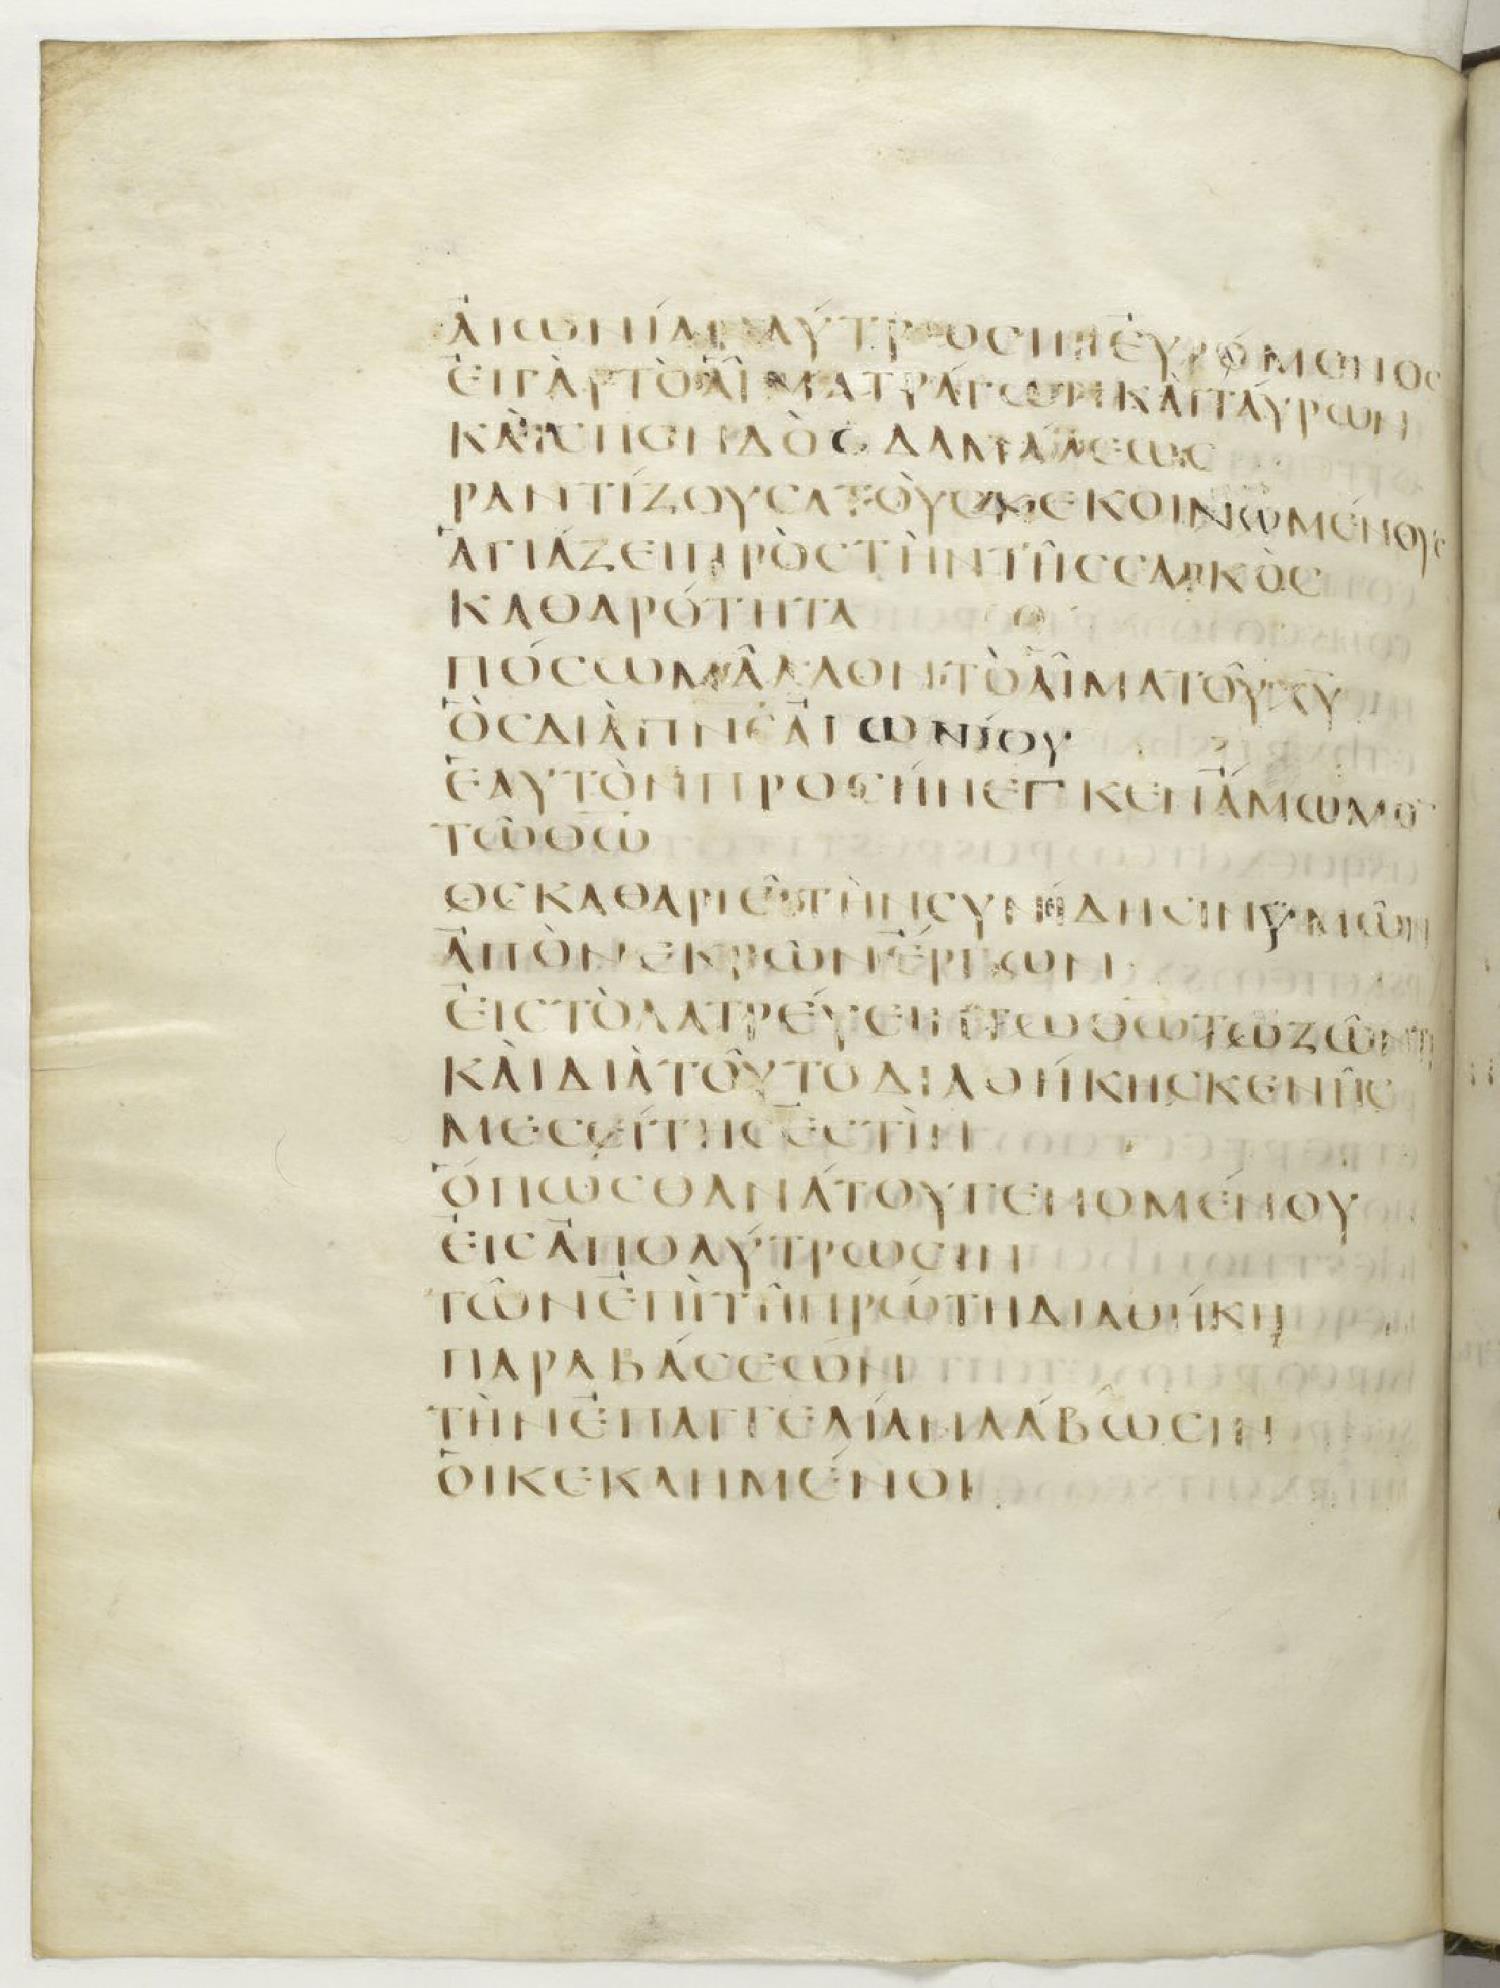 ἈΙΩΝΊΑΝ ΛΎΤΡΩϹΙΝ ἘΥΡΌΜΕΝΟϹ
ἘΙΓᾺΡΤῸἈῖΜΑΤΡΆΓΩΝΚᾺΙΤΆΥΡΩΝ
ΚᾺΙϹΠΟΝΔῸϹΔΑΜΆΛΕΩϹ
ΡΑΝΤΊΖΟΥϹΑΤΟῪϹΚΕΚΟΙΝΩΜΈΝΟΥϹ
ἉΓΙΆΖΕΙΠΡῸϹΤῊΝΤῆϹϹΑΡΚῸϹ
ΚΑΘΑΡΌΤΗΤΑ
ΠΌϹΩΜᾶΛΛΟΝΤῸἈῖΜΑΤΟῦΧ̅Υ̅
ὉϹΔΙᾺΠΝϹἈΙΩΝΊΟΥ
ἙΑΥΤῸΝΠΡΟϹΉΝΕΓΚΕΝἌΜΩΜΟ̅
ΤῶΘΩ̅
ΘΕΚΑΘΑΡΙΕῖΤῊΝϹΥΝΊΔΗϹΙΝΥΜῶΝ
ἈΠῸΝΕΚΡῶΝἜΡΓΩΝ
ἘΙϹΤῸΛΑΤΡΕΎΕΙΝΤΩΘΩ̅ΤΩΖῶΝΤΙ
ΚᾺΙΔΙᾺΤΟῦΤΟΔΙΑΘΉΚΗϹΚΕΝῆϹ
ΜΕϹΕΊΤΗϹἘϹΤῚΝ
ὍΠΩϹΘΑΝΆΤΟΥΓΕΝΟΜΈΝΟΥ
ἘΙϹἈΠΟΛΎΤΡΩϹΙΝ
ΤῶΝἘΠῚΤῆΠΡΏΤΗΔΙΑΘΉΚΗ
ΠΑΡΑΒΆϹΕΩΝ
ΤῊΝἘΠΑΓΓΕΛΊΑΝΛΆΒΩϹΙΝ
ὉΙΚΕΚΛΗΜΈΝΟΙ